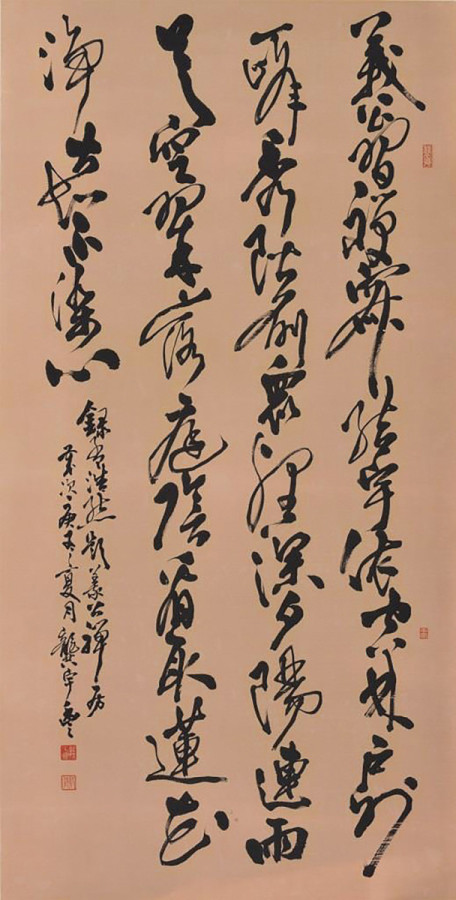 義公習禪寂結宇依空林戶外
一峰秀階前眾壑深夕陽連雨
足空翠落庭陰看取蓮花
淨方知不染心
錄孟浩然題義公禪房
歲次庚子夏月龔宇